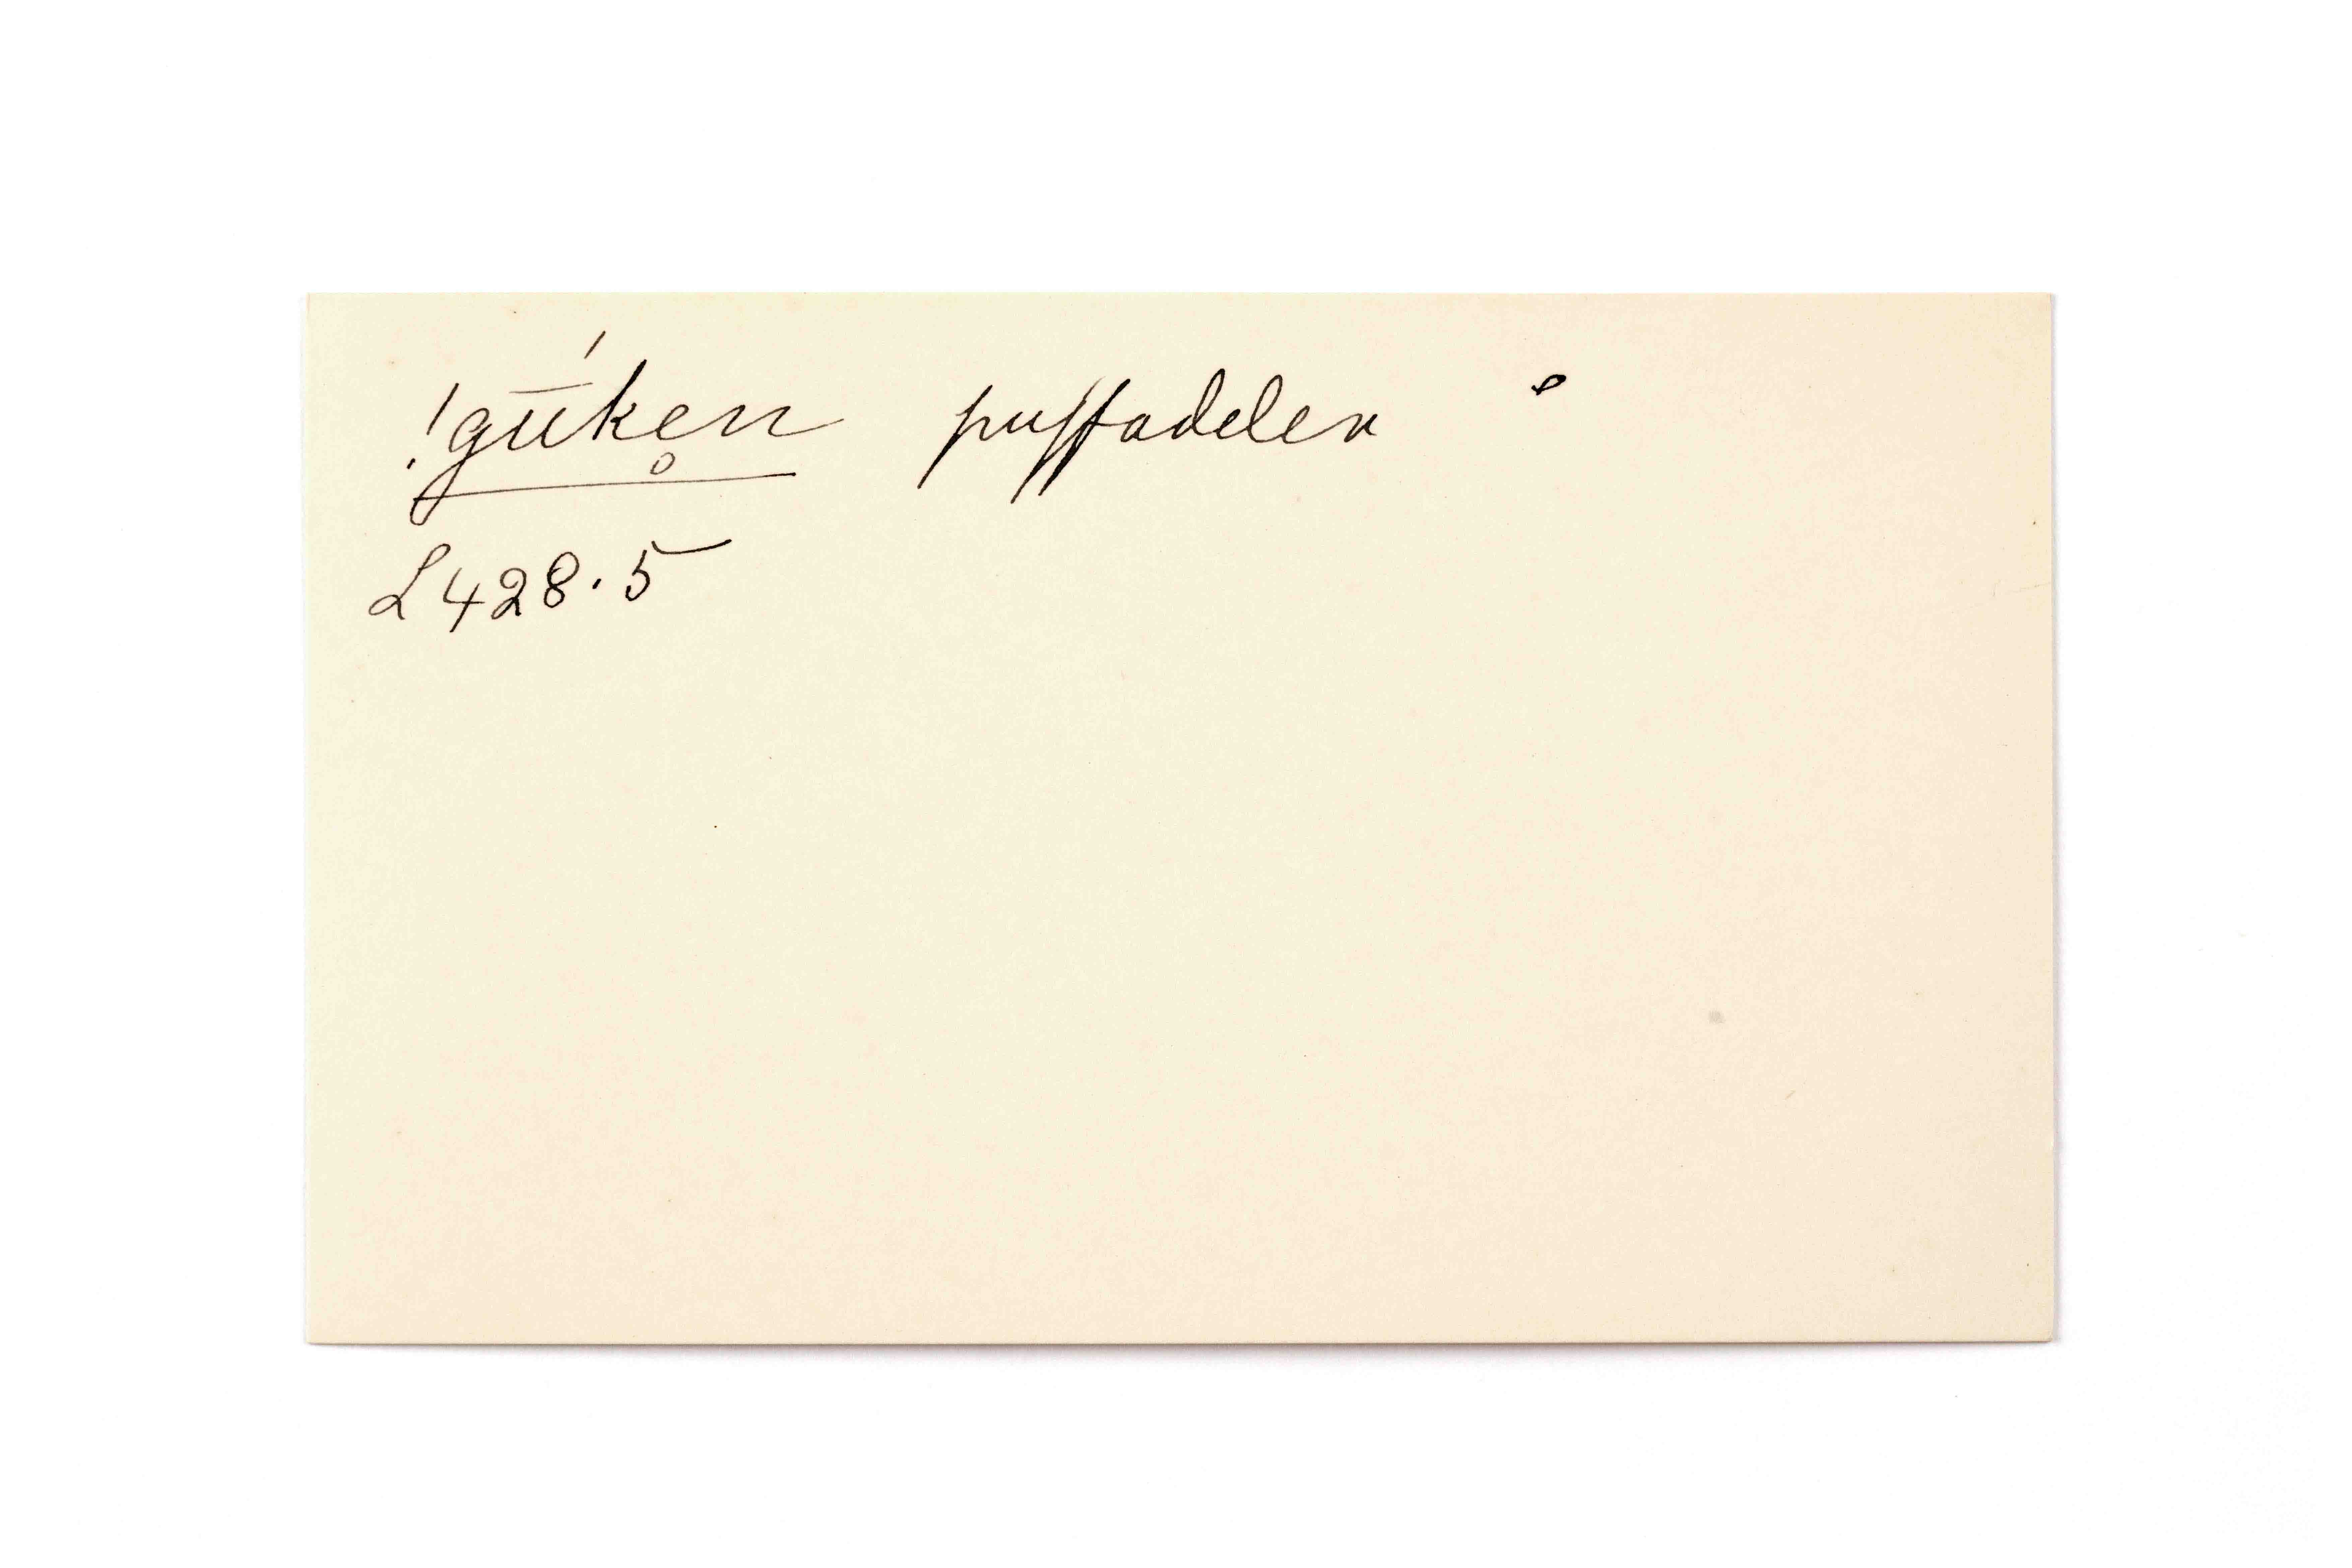 !gū́ken̥ puffadder
L 428.5